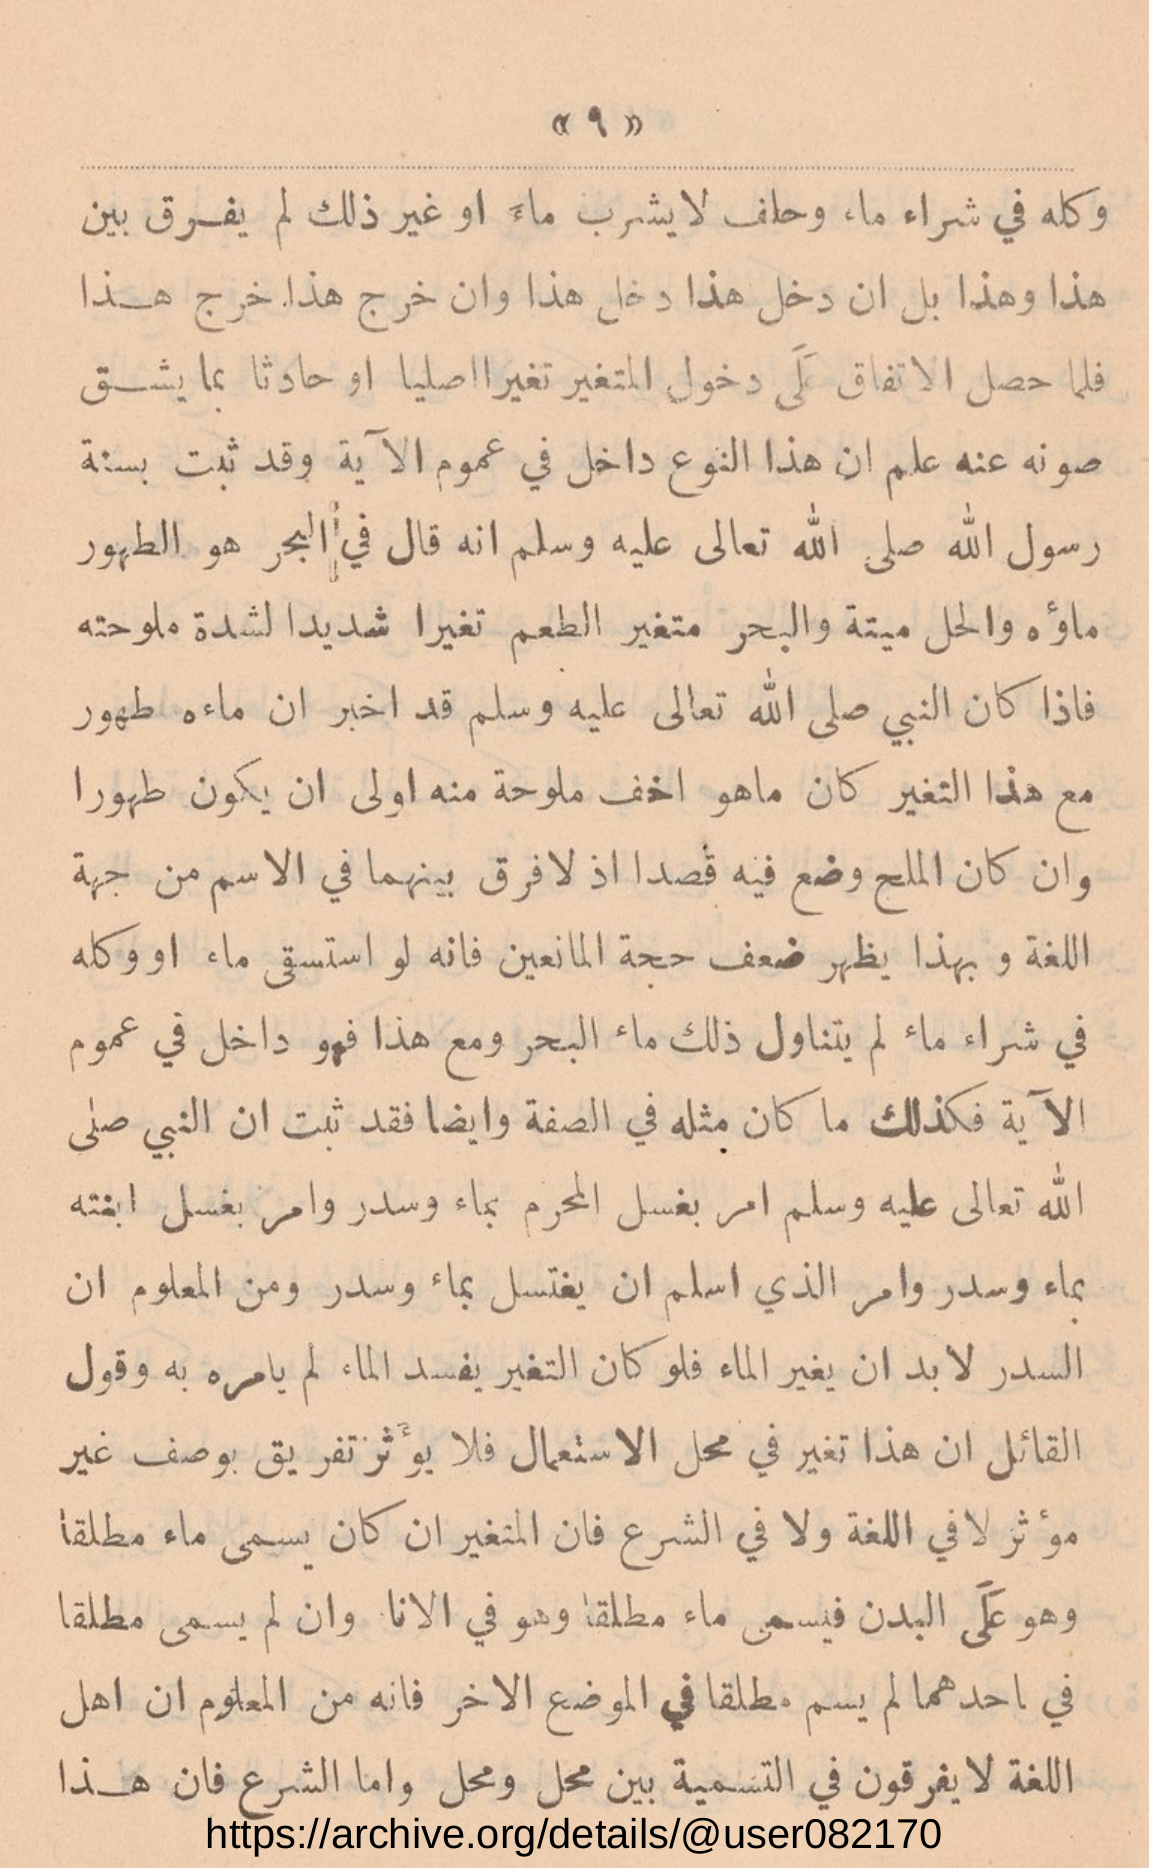 « ٩ »
وكله في شراء ماء وحلف لايشرب ماءً او غير ذلك لم يفرق بين
هذا وهذا بل ان دخل هذا دخل هذا وان خرج هذا خرج هذا
فلما حصل الاتفاق عَلَى دخول المتغير تغيرا اصليا او حادثا بما يشق
صونه عنه علم ان هذا النوع داخل في عموم الآية وقد ثبت بسنة
رسول الله صلى الله تعالى عليه وسلم انه قال في البحر هو الطهور
ماؤه والحل ميتة والبحر متغير الطعم تغيرا شديدا لشدة ملوحته
فاذا كان النبي صلى الله تعالى عليه وسلم قد اخبر ان ماءه طهور
مع هذا التغير كان ماهو اخف ملوحة منه اولى ان يكون طهورا
وان كان الملح وضع فيه قصدا اذ لا فرق بينهما في الاسم من جهة
اللغة و بهذا يظهر ضعف حجة المانعين فانه لو استسقى ماء او وكله
في شراء ماء لم يتناول ذلك ماء البحر ومع هذا فهو داخل في عموم
الآية فكذلك ما كان مثله في الصفة وايضا فقد ثبت ان النبي صلى
الله تعالى عليه وسلم امر بغسل المحرم بماء وسدر وامر بغسل ابنته
بماء وسدر وامر الذي اسلم ان يغتسل بماء وسدر ومن المعلوم ان
السدر لا بد ان يغير الماء فلو كان التغير يفسد الماء لم يامره به وقول
القائل ان هذا تغير في محل الاستعمال فلا يؤثر تفريق بوصف غير
مؤثر لا في اللغة ولا في الشرع فان المتغير ان كان يسمى ماء مطلقا
وهو عَلَى البدن فيسمى ماء مطلقا وهو في الانا وان لم يسمى مطلقا
في احدهما لم يسم مطلقا في الموضع الاخر فانه من المعلوم ان اهل
اللغة لا يفرقون في التسمية بين محل ومحل واما الشرع فان هذا
https://archive.org/details/@user082170